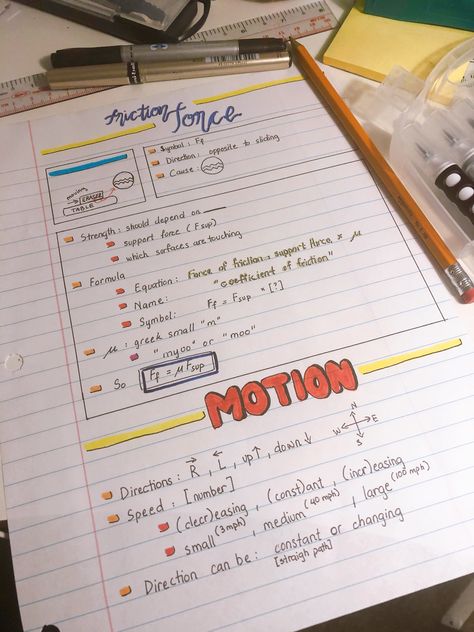 friction force
Symbol: Ff
Direction: opposite to sliding
Cause:
moving
ERASER
TABLE
Strength: should depend on
support force (Fsup)
which surfaces are touching
Formula
Equation: Force of friction = support force × μ
Name: "coefficient of friction"
Symbol: Ff = Fsup × [?]
μ: greek small "m"
"myoo" or "moo"
So Ff = μFsup
MOTION
N
W E
S
Directions: R, L, up↑, down↓
Speed: [number]
(decr)easing, (const)ant, (incr)easing
small (3mph), medium (40 mph), large (100 mph)
Direction can be: constant or changing
[straigh path]